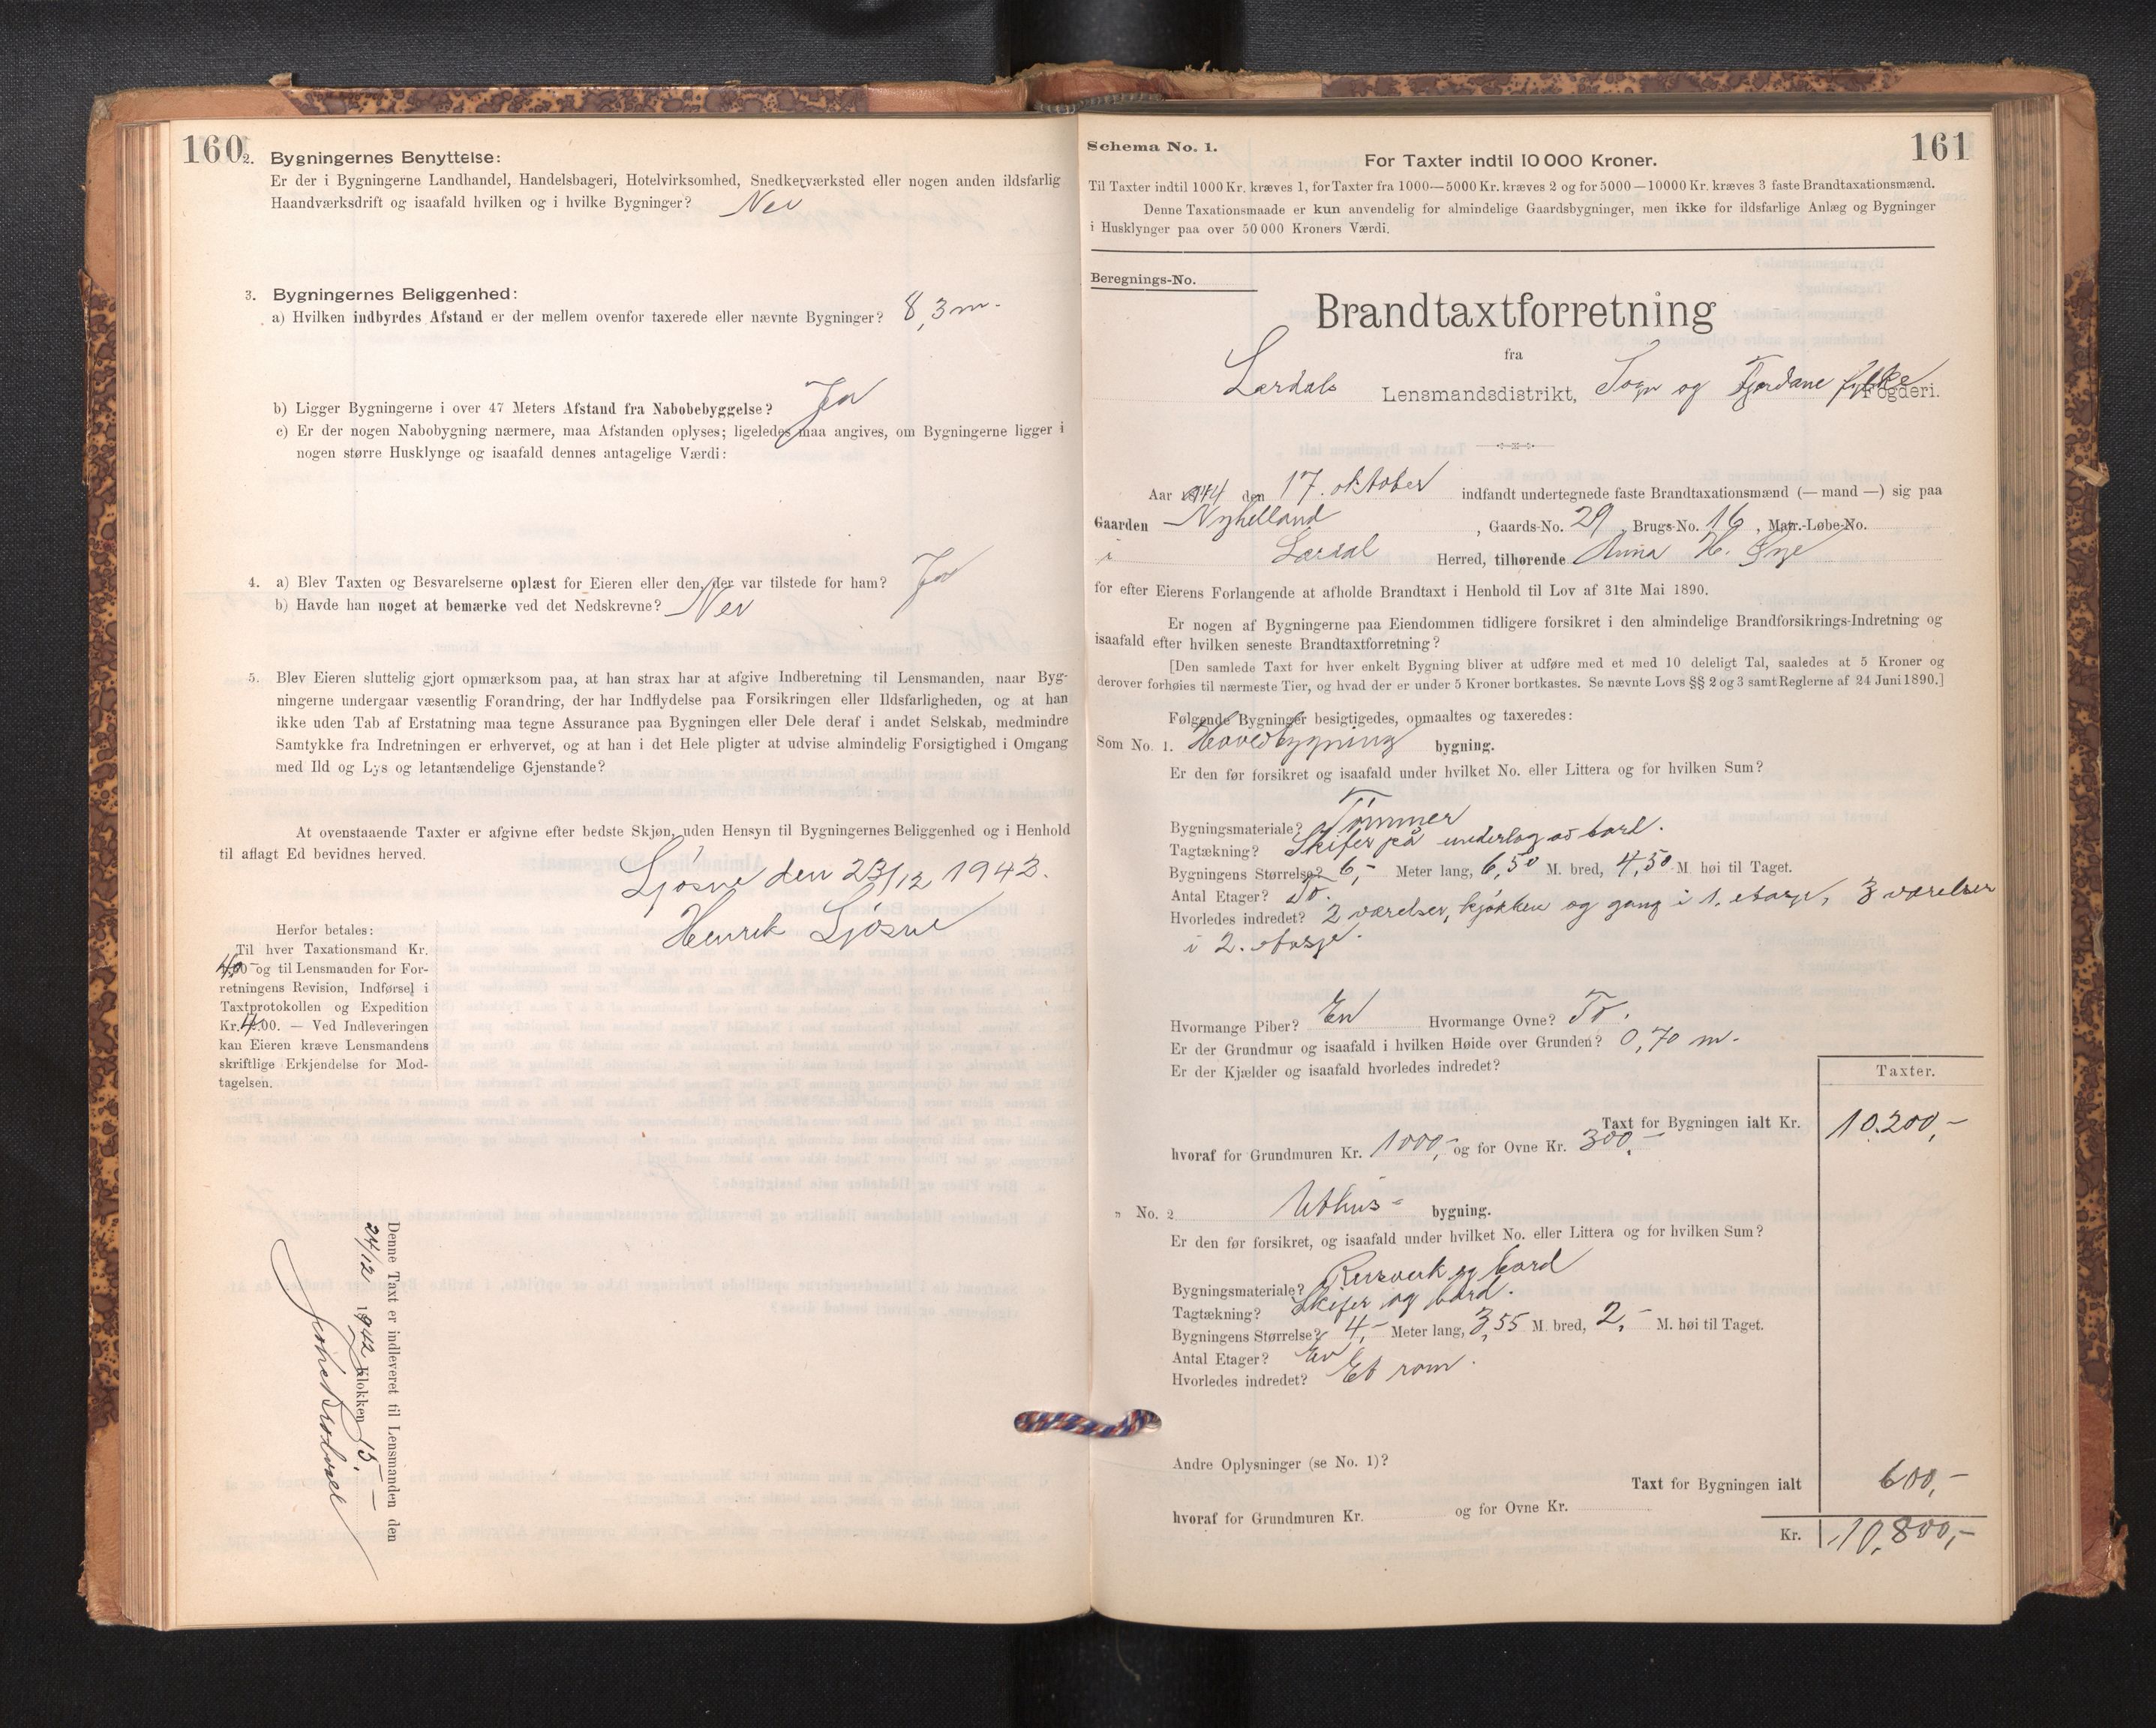 160
2. Bygningernes Benyttelse:
Er der i Bygningerne Landhandel, Handelsbageri, Hotelvirksomhed, Snedkerværksted eller nogen anden ildsfarlig
Haandværksdrift og isaafald hvilken og i hvilke Bygninger? Nei
3. Bygningernes Beliggenhed:
a) Hvilken indbyrdes Afstand er der mellem ovenfor taxerede eller nævnte Bygninger? 8,3 m.
b) Ligger Bygningerne i over 47 Meters Afstand fra Nabobebyggelse? Ja
c) Er der nogen Nabobygning nærmere, maa Afstanden oplyses; ligeledes maa angives, om Bygningerne ligger i
nogen større Husklynge og isaafald dennes antagelige Værdi:
4. a) Blev Taxten og Besvarelserne oplæst for Eieren eller den, der var tilstede for ham? Ja
b) Havde han noget at bemærke ved det Nedskrevne? Nei
5. Blev Eieren sluttelig gjort opmærksom paa, at han strax har at afgive Indberetning til Lensmanden, naar Byg-
ningerne undergaar væsentlig Forandring, der har Indflydelse paa Forsikringen eller Ildsfarligheden, og at han
ikke uden Tab af Erstatning maa tegne Assurance paa Bygningen eller Dele deraf i andet Selskab, medmindre
Samtykke fra Indretningen er erhvervet, og at han i det Hele pligter at udvise almindelig Forsigtighed i Omgang
med Ild og Lys og letantændelige Gjenstande?
At ovenstaaende Taxter er afgivne efter bedste Skjøn, uden Hensyn til Bygningernes Beliggenhed og i Henhold
til aflagt Ed bevidnes herved.
Ljøsne den 23/12 1942.
Henrik Ljøsne
Herfor betales:
Til hver Taxationsmand Kr.
4,00 og til Lensmanden for For-
retningens Revision, Indførsel i
Taxtprotokollen og Expedition
Kr. 4.00. — Ved Indleveringen
kan Eieren kræve Lensmandens
skriftlige Erkjendelse for Mod-
tagelsen.
Denne Taxt er indleveret til Lensmanden den
24/12 1942 Klokken 15.—
161
Schema No. 1.
For Taxter indtil 10 000 Kroner.
Til Taxter indtil 1000 Kr. kræves 1, for Taxter fra 1000—5000 Kr. kræves 2 og for 5000—10000 Kr. kræves 3 faste Brandtaxationsmænd.
Denne Taxationsmaade er kun anvendelig for almindelige Gaardsbygninger, men ikke for ildsfarlige Anlæg og Bygninger
i Husklynger paa over 50 000 Kroners Værdi.
Beregnings-No.
Brandtaxtforretning
fra
Lærdals Lensmandsdistrikt, Sogn og Fjordane fylke Fogderi.
Aar 1944 den 17. oktober indfandt undertegnede faste Brandtaxationsmænd (— mand —) sig paa
Gaarden Nyhelland, Gaards-No. 29, Brugs-No. 16, Matr.-Løbe-No.
i Lærdal Herred, tilhørende Anna H. Øye
for efter Eierens Forlangende at afholde Brandtaxt i Henhold til Lov af 31te Mai 1890.
Er nogen af Bygningerne paa Eiendommen tidligere forsikret i den almindelige Brandforsikrings-Indretning og
isaafald efter hvilken seneste Brandtaxtforretning?
[Den samlede Taxt for hver enkelt Bygning bliver at udføre med et med 10 deleligt Tal, saaledes at 5 Kroner og
derover forhøies til nærmeste Tier, og hvad der er under 5 Kroner bortkastes. Se nævnte Lovs §§ 2 og 3 samt Reglerne af 24 Juni 1890.]
Følgende Bygninger besigtigedes, opmaaltes og taxeredes:
Som No. 1. Hovedbygning bygning.
Er den før forsikret og isaafald under hvilket No. eller Littera og for hvilken Sum?
Bygningsmateriale? Tømmer
Tagtækning? Skifer på underlag av bord.
Bygningens Størrelse? 6,- Meter lang, 6,50 M. bred, 4,50 M. høi til Taget.
Antal Etager? To.
Hvorledes indredet? 2 værelser, kjøkken og gang i 1. etasje, 3 værelser
i 2. etasje.
Hvormange Piber? En Hvormange Ovne? To.
Er der Grundmur og isaafald i hvilken Høide over Grunden? 0,70 m.
Er der Kjælder og isaafald hvorledes indredet?
Taxter.
Taxt for Bygningen ialt Kr. 10.200,-
hvoraf for Grundmuren Kr. 1000,- og for Ovne Kr. 300,-
" No. 2 Uthus- bygning.
Er den før forsikret, og isaafald under hvilket No. eller Littera og for hvilken Sum?
Bygningsmateriale? Reisverk og bord
Tagtækning? Skifer og bord.
Bygningens Størrelse? 4,- Meter lang, 3,55 M. bred, 2,- M. høi til Taget.
Antal Etager? En
Hvorledes indredet? Et rom.
Andre Oplysninger (se No. 1)?
Taxt for Bygningen ialt 600,-
hvoraf for Grundmuren Kr. og for Ovne Kr.
Kr. 10,800,-